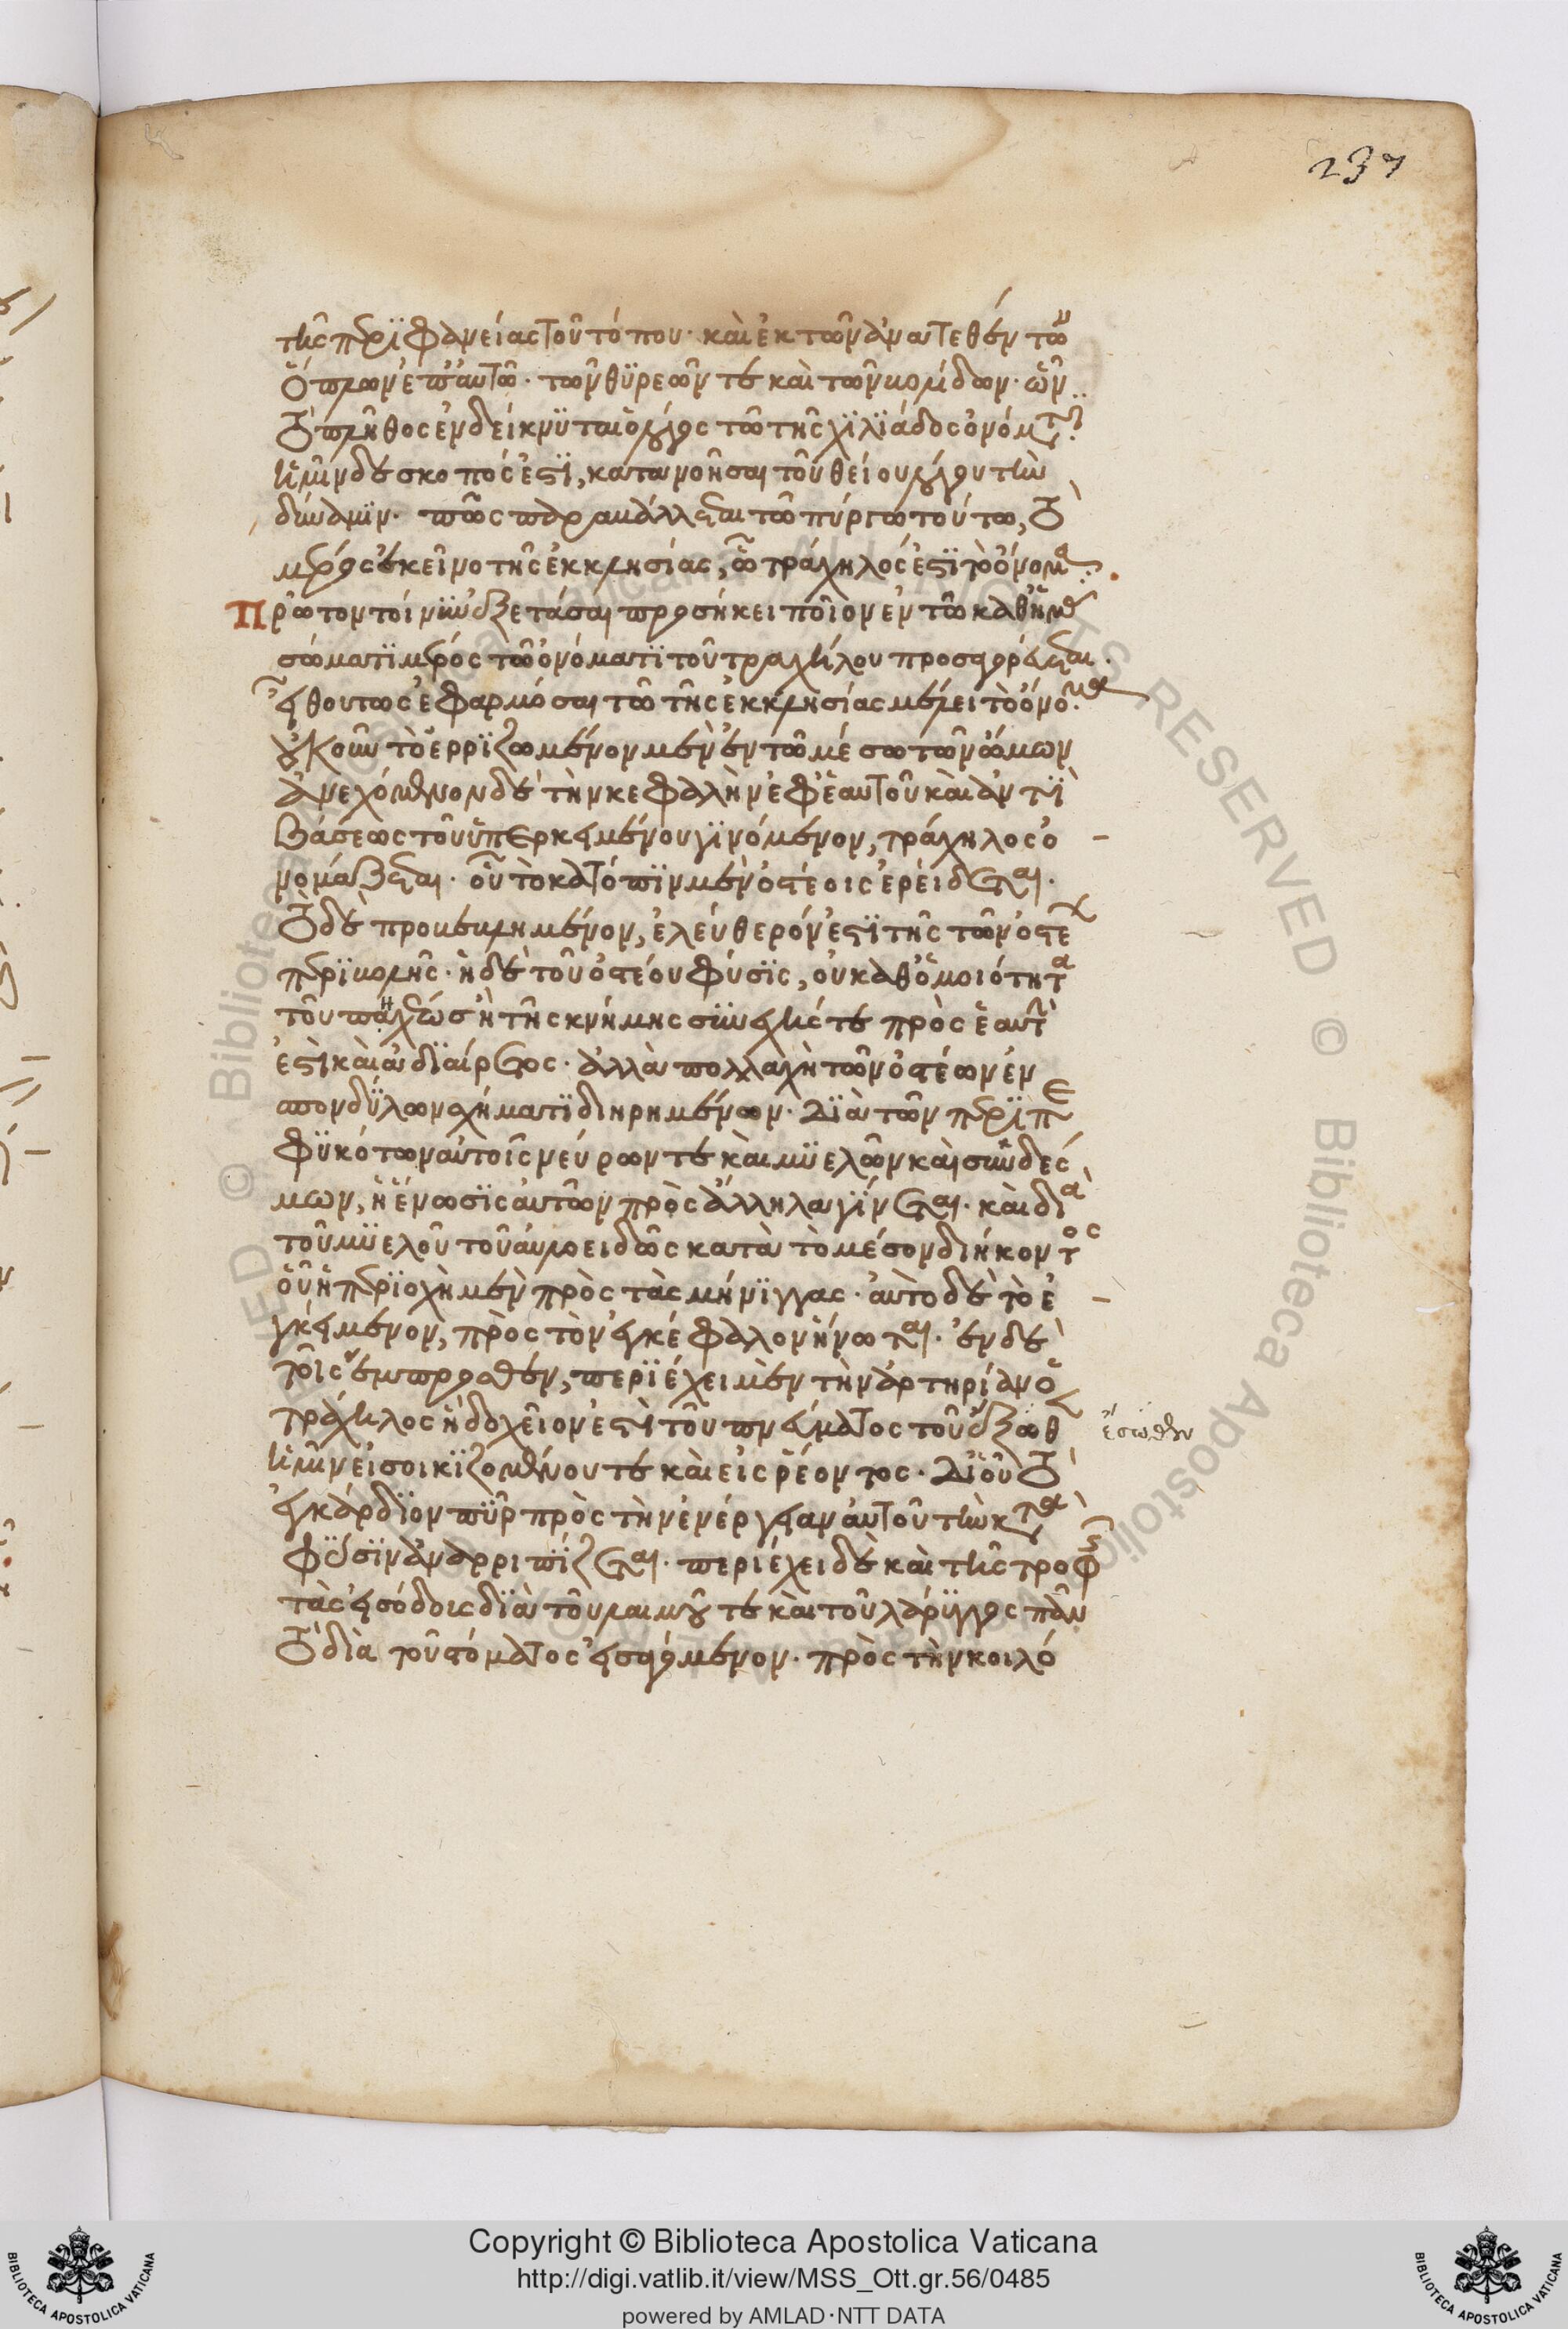 237
τῆς περιφανείας τοῦ τόπου· καὶ ἐκ τῶν ἀνατεθέντων
ὅπλων ἐπ' αὐτῶ· τῶν θυρεῶν τε καὶ τῶν κομίδων· ὧν
τὸ πλῆθος ἐνδείκνυται ὁ λόγος τῶ τῆς χιλιάδος ὀνόματι
ἡμῖν δὲ σκοπός ἐστι, κατανοῆσαι τοῦ θείου λόγου τὴν
δύναμιν· πῶς παραβάλλεται τῶ πύργω τούτω, τὸ
μέρος ἐκεῖνο τῆς ἐκκλησίας, ὧ τράχηλός ἐστι τὸ ὄνομα
Πρῶτον τοίνυν ἐξετάσαι προσήκει ποῖον ἐν τῶ καθ' ἡμᾶς
σώματι μέρος τῶ ὀνόματι τοῦ τραχήλου προσαγορεύεται·
εἶθ' οὕτως ἐφαρμόσαι τῶ τῆς ἐκκλησίας μέλει τὸ ὄνομα
οὐκοῦν τὸ ἐρριζωμένον μὲν ἐν τῶ μέσω τῶν ὤμων
ἀνεχόμενον δὲ τὴν κεφαλὴν ἐφ' ἑαυτοῦ καὶ ἀντὶ
βάσεως τοῦ ὑπερκειμένου γινόμενον, τράχηλος ὀ
νομάζεται· οὗ τὸ κατόπιν μὲν ὀστέοις ἐρείδεται·
τὸ δὲ προβεβλημένον, ἐλεύθερόν ἐστι τῆς τῶν ὀστέων
περιβολῆς· ἡ δὲ τοῦ ὀστέου φύσις, οὐ καθ' ὁμοιότητα
τοῦ πήχεώς ἢ τῆς κνήμης συνεχής τε πρὸς ἑαυτὴν
ἐστὶ καὶ ἀδιαίρετος· ἀλλὰ πολλαχῆ τῶν ὀστέων ἐν
σπονδύλων σχήματι διηρημένων· διὰ τῶν περιπε
φυκότων αὐτοῖς νεύρων τε καὶ μυελῶν καὶ συνδέσ
μων, ἡ ἕνωσις αὐτῶν πρὸς ἄλληλα γίνεται· καὶ διὰ
τοῦ μυελοῦ τοῦ αὐλοειδῶς κατὰ τὸ μέσον διήκοντος
οὗ ἡ περιοχὴ μὲν πρὸς τὰς μήνιγγας· αὐτὸ δὲ τὸ ἐ
γκείμενον, πρὸς τὸν ἐγκέφαλον ἥνωται· ἐν δὲ
τοῖς ἔμπροσθεν, περιέχει μὲν τὴν ἀρτηρίαν ὁ
τράχηλος ἡ δοχεῖον ἐστὶ τοῦ πνεύματος τοῦ ἔξωθεν
ἔσωθεν
ἡμῖν εἰσοικιζομένου τε καὶ εἰσρέοντος· δι' οὗ τὸ
ἐγκάρδιον πῦρ πρὸς τὴν ἐνέργειαν αὐτοῦ τὴν κατὰ
φύσιν ἀναρριπίζεται· περιέχει δὲ καὶ τῆς τροφῆς
τὰς εἰσόδοις διὰ τοῦ λαιμοῦ τε καὶ τοῦ λάρυγγος πᾶν
τὸ διὰ τοῦ στόματος εἰσαγόμενον· πρὸς τὴν κοιλό
Copyright © Biblioteca Apostolica Vaticana
http://digi.vatlib.it/view/MSS_Ott.gr.56/0485
powered by AMLAD·NTT DATA
BIBLIOTECA APOSTOLICA VATICANA
BIBLIOTECA APOSTOLICA VATICANA